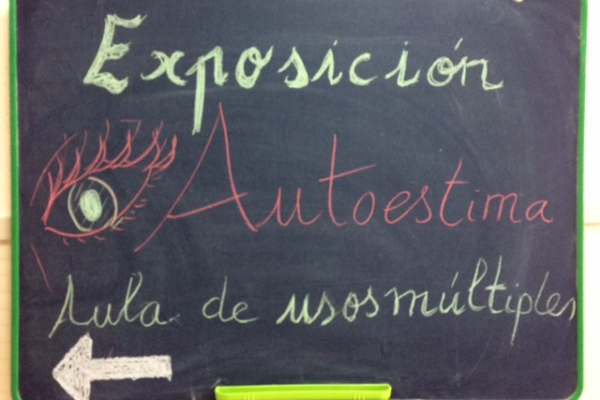 Exposición
Autoestima
Aula de usos múltiples